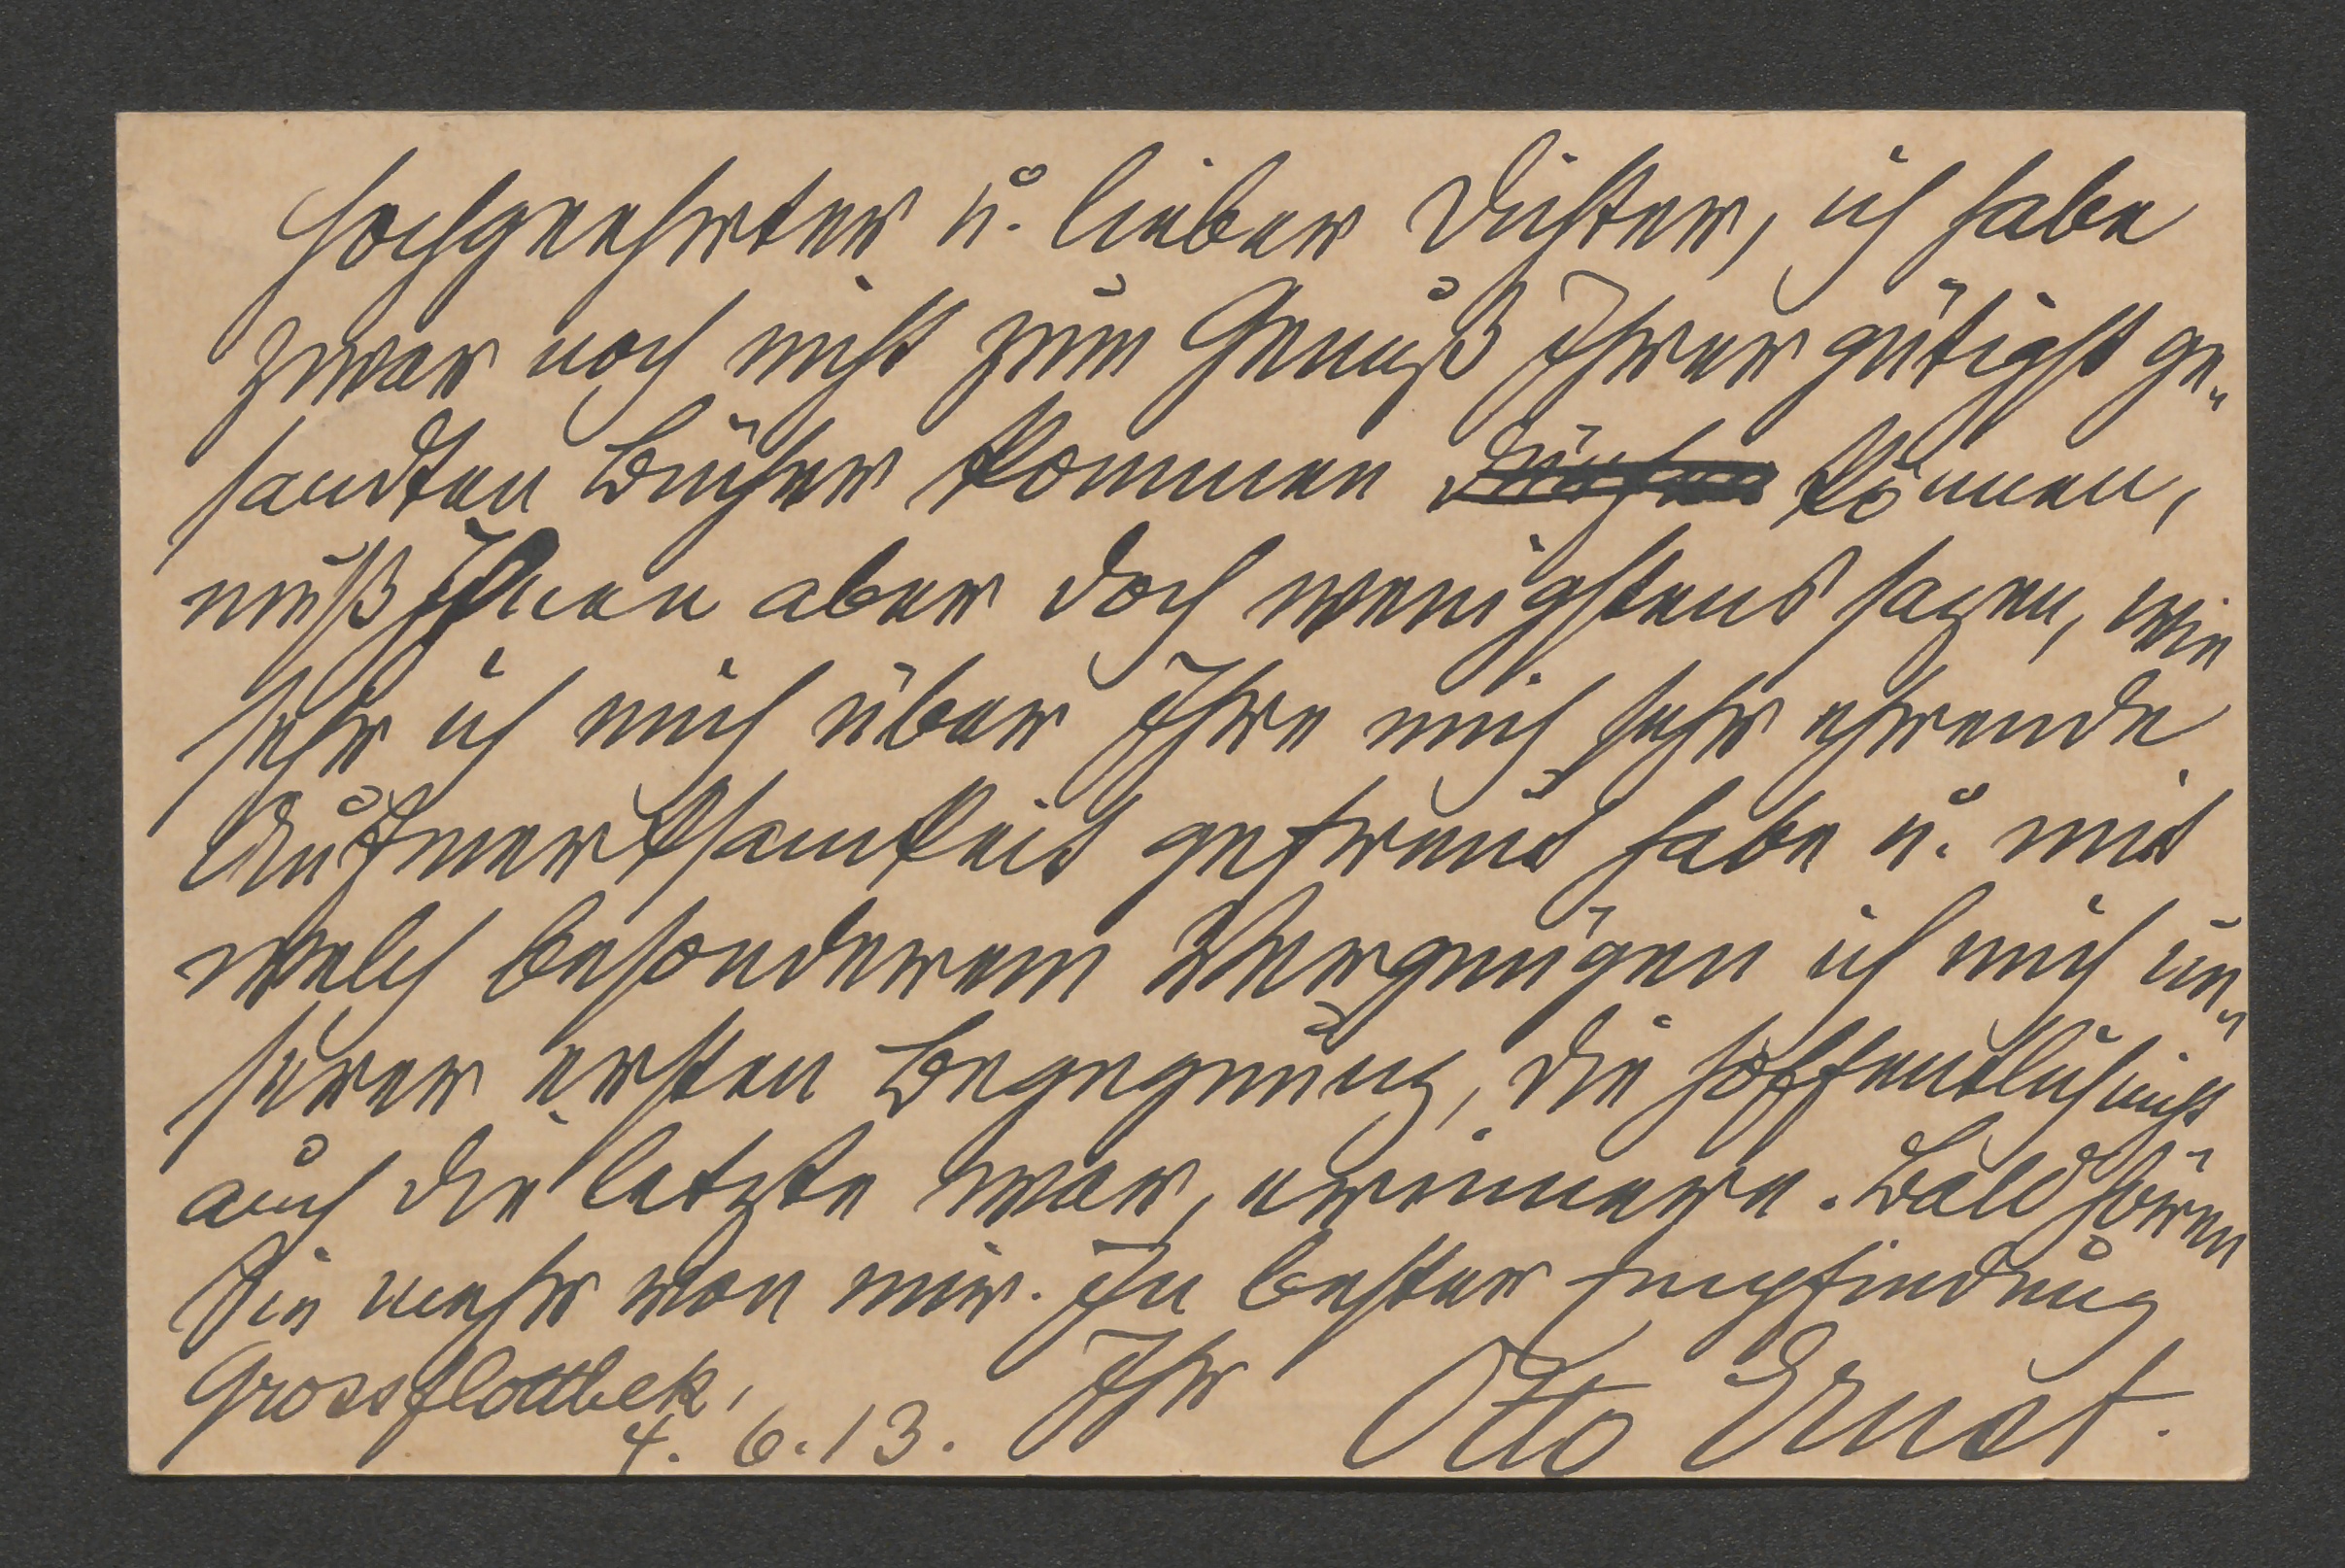 Hochgeehrter u. lieber Dichter, ich habe
zwar noch nicht zum Genuß Ihrer gütigst ge-
sandten Bücher kommen können,
muß Ihnen aber doch wenigstens sagen, wie
sehr ich mich über Ihre mich sehr ehrende
Aufmerksamkeit gefreut habe u. mit
welch besonderem Vergnügen ich mich un-
serer ersten Begegnung, die hoffentlich nicht
auch die letzte war, erinnere. Bald hören
Sie mehr von mir. In bester Empfindung
Grossflottbek, Ihr Otto Ernst.
4. 6. 13.